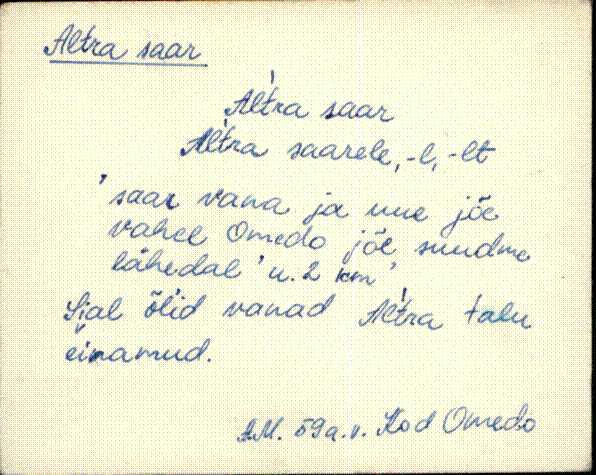 Altra saar
Al'tra saar
Al'tra saarele, -l, -lt
'saar vana ja uue jõe
vahel Omedo jõe suudme
lähedal' u. 2 km'
Sial õlid vanad Al'tra talu
einamud.
A.M. 59 a.v. Kod Omedo